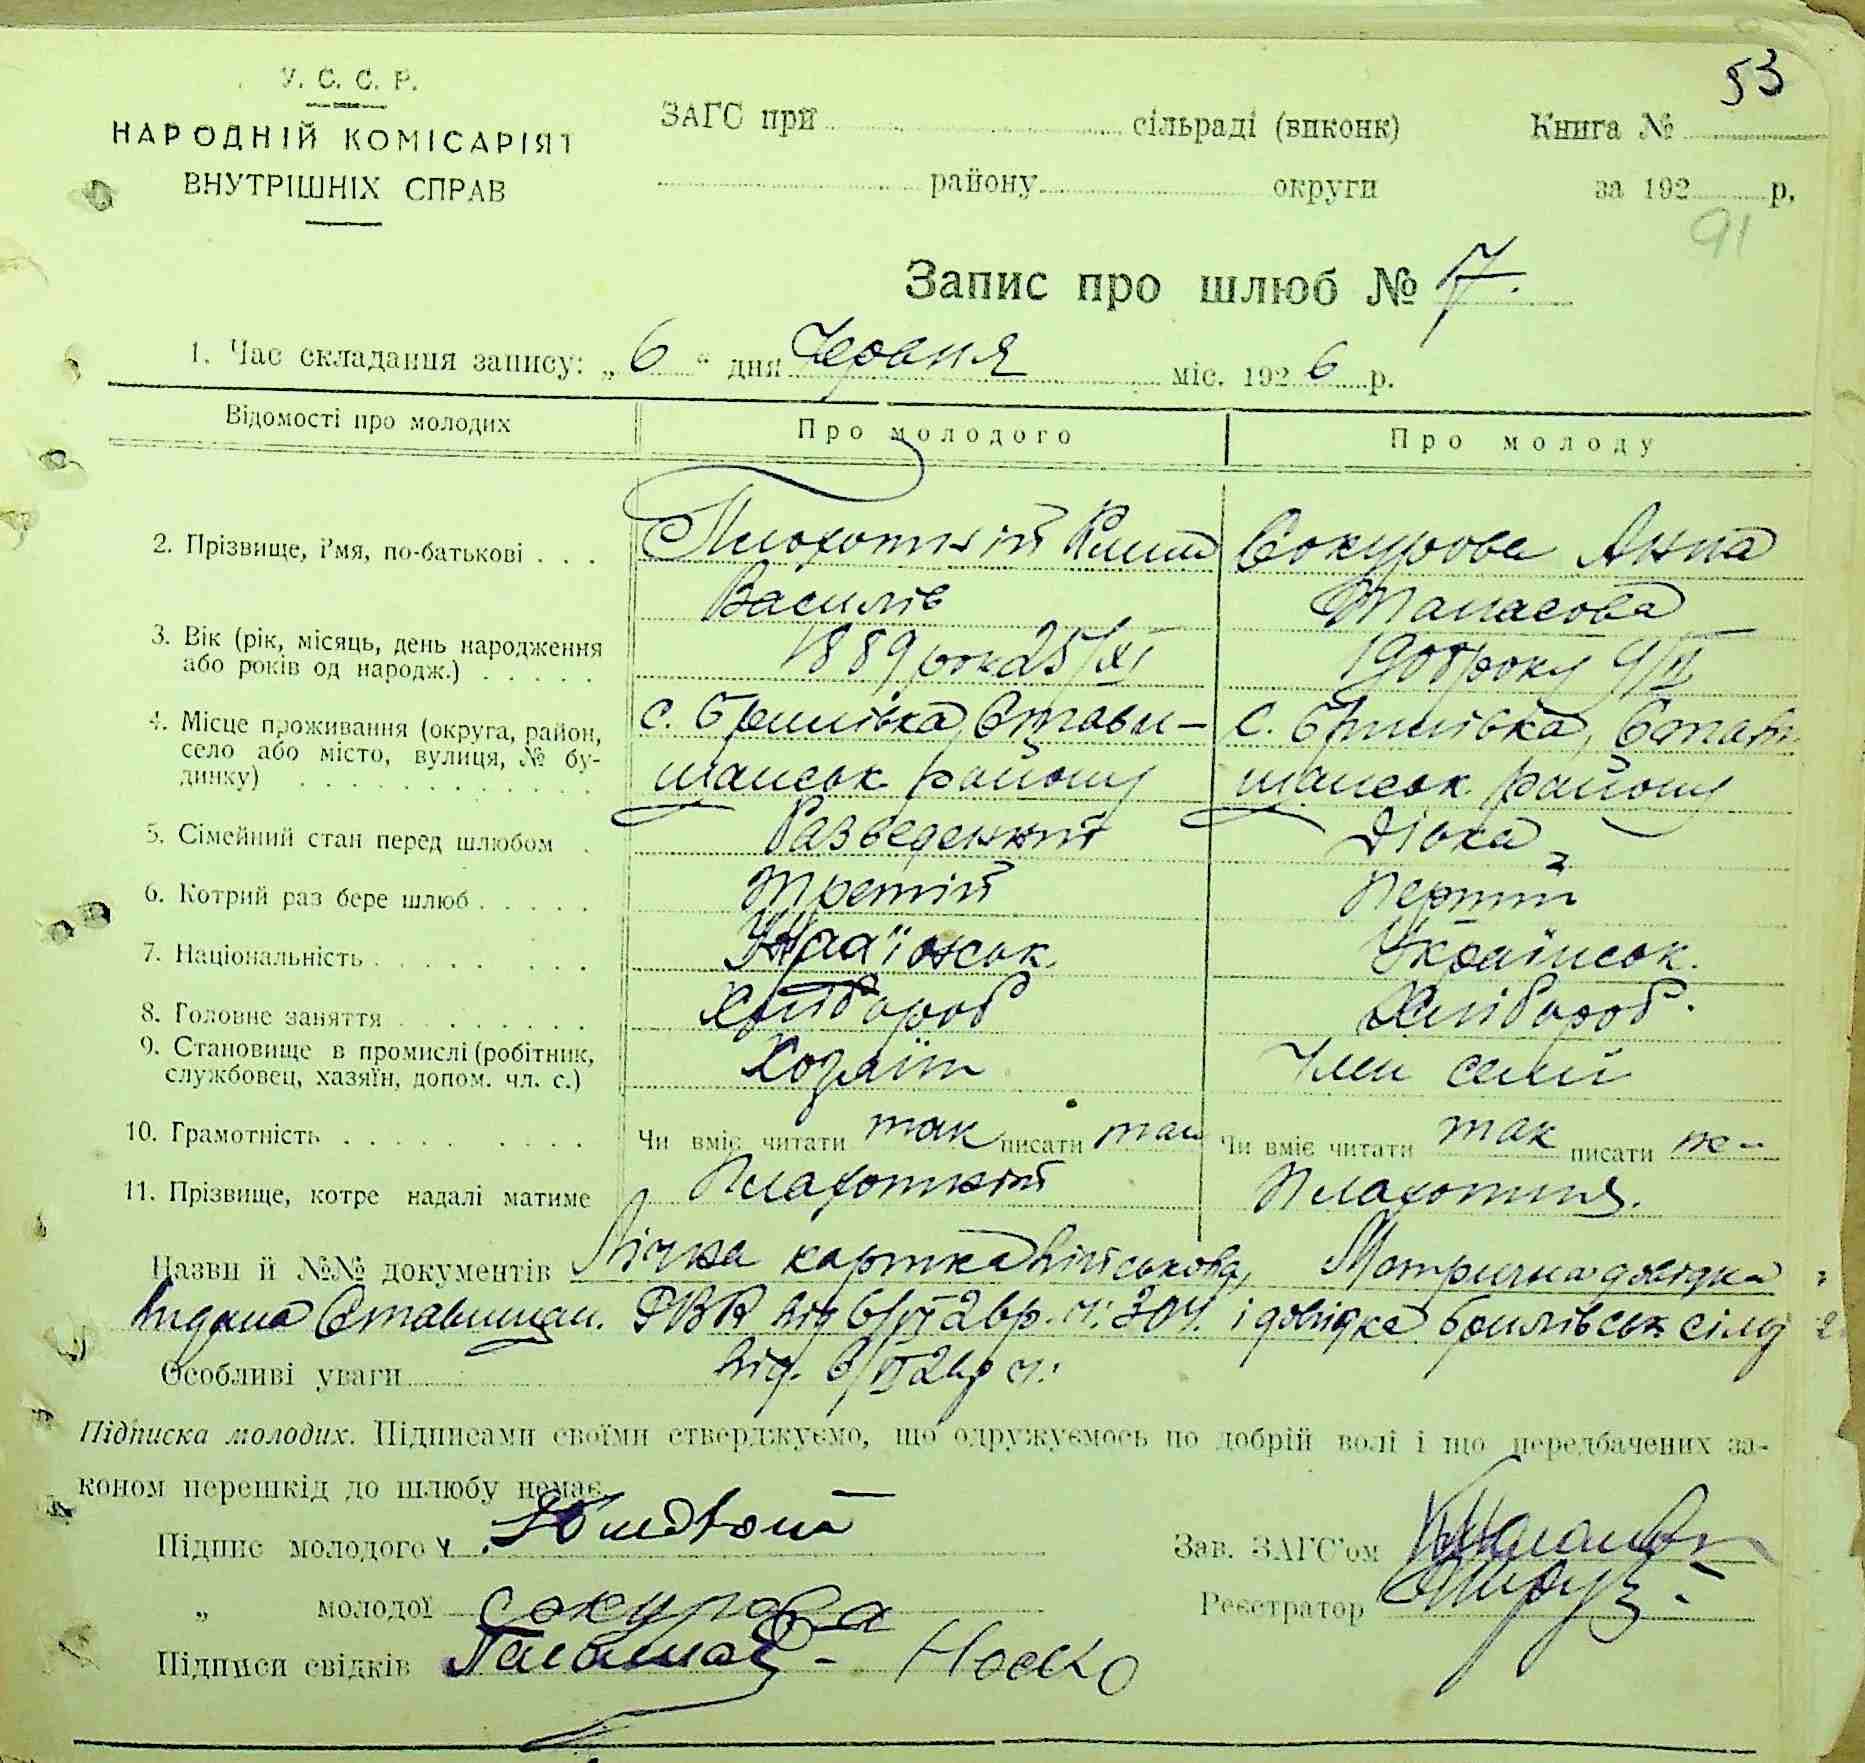 53
У. С. С. Р.
НАРОДНІЙ КОМІСАРІЯТ
ВНУТРІШНІХ СПРАВ
ЗАГС при сільраді (виконк) Книга №
району округи за 192 р.
91
Запис про шлюб № 7.
1. Час складання запису: „6" дня Червня міс. 1926 р.
Відомості про молодих Про молодого Про молоду
2. Прізвище, і'мя, по-батькові . . . Клим Сокурова Анна
Василів Танасова
3. Вік (рік, місяць, день народження або років од народж.) . . . . . 1889 рок 25/XI року
4. Місце проживання (округа, район, село або місто, вулиця, № будинку) . . . . . . . . . . . .
с. Брилівка, Стави- с. Брилівка, Стави
щанськ району щанськ району
5. Сімейний стан перед шлюбом . Разведенний Дівка
6. Котрий раз бере шлюб . . . . . Третій Перший
7. Національність . . . . . . . . Українськ. Українськ.
8. Головне заняття . . . . . . . . Хлібороб Хлібороб.
9. Становище в промислі (робітник, службовец, хазяїн, допом. чл. с.) Хозяїн Член семії
10. Грамотність . . . . . . . . . Чи вміє читати так писати так Чи вміє читати так писати не-
11. Прізвище, котре надалі матиме Плахотній
Назви й №№ документів Лічна картка військова, Метрична довідка
видана Ставищан. РВК від 6/VI 26 р. ч: і довідка Брилівськ
Особливі уваги від. 6/VI 26 р ч:
Підписка молодих. Підписами своїми стверджуємо, що одружуємось по добрій волі і що передбачених за-
коном перешкід до шлюбу немає.
Підпис молодого
Зав. ЗАГС'ом
„ молодої Сокурова
Реєстратор
Підписи свідків Носко